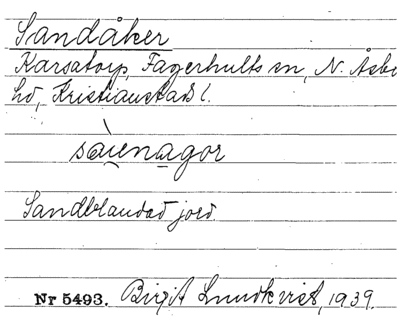 Sandåker
Karsatorp, Fagerhults sn, N. Åsbo
hd, Kristianstads l.
sàenagor
Sandblandad jord
Nr 5493. Birgit Lundkvist, 1939.